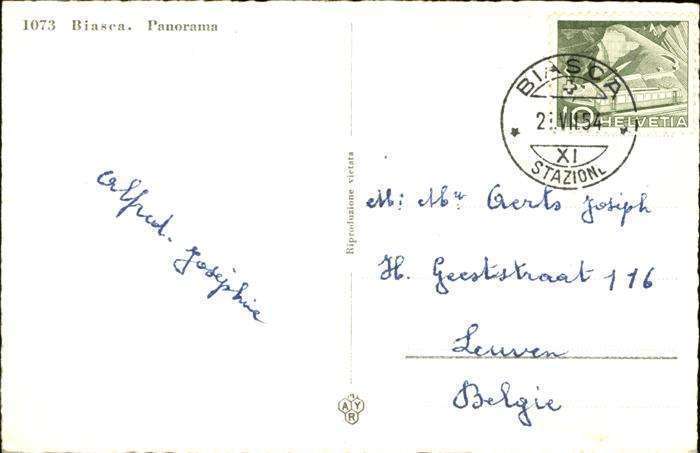 1073 Biasca. Panorama
BIASCA
10 HELVETIA
VII 54
XI
STAZIONE
Riproduzione vietata
Alfred. Josephine
M: Mw Aerts Joseph
H. Geeststraat 116
Leuven
Belgie
A Y
R